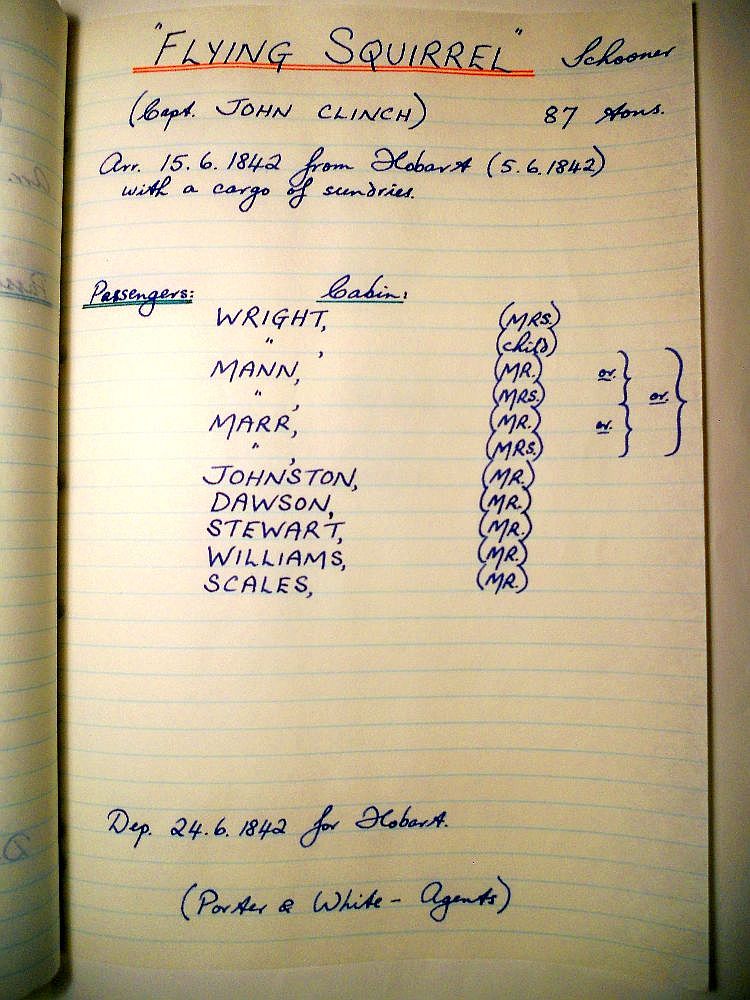 "FLYING SQUIRREL" Schooner
(Capt. JOHN CLINCH) 87 tons.
Arr. 15.6.1842 from Hobart (5.6.1842)
with a cargo of sundries.
Passengers: Cabin:
WRIGHT, (MRS.)
" , (child)
MANN, (MR.) or.
" , (MRS.) or.
MARR, (MR.) or.
" , (MRS.)
JOHNSTON, (MR.)
DAWSON, (MR.)
STEWART, (MR.)
WILLIAMS, (MR.)
SCALES, (MR.)
Dep. 24.6.1842 for Hobart.
(Porter & White - Agents)